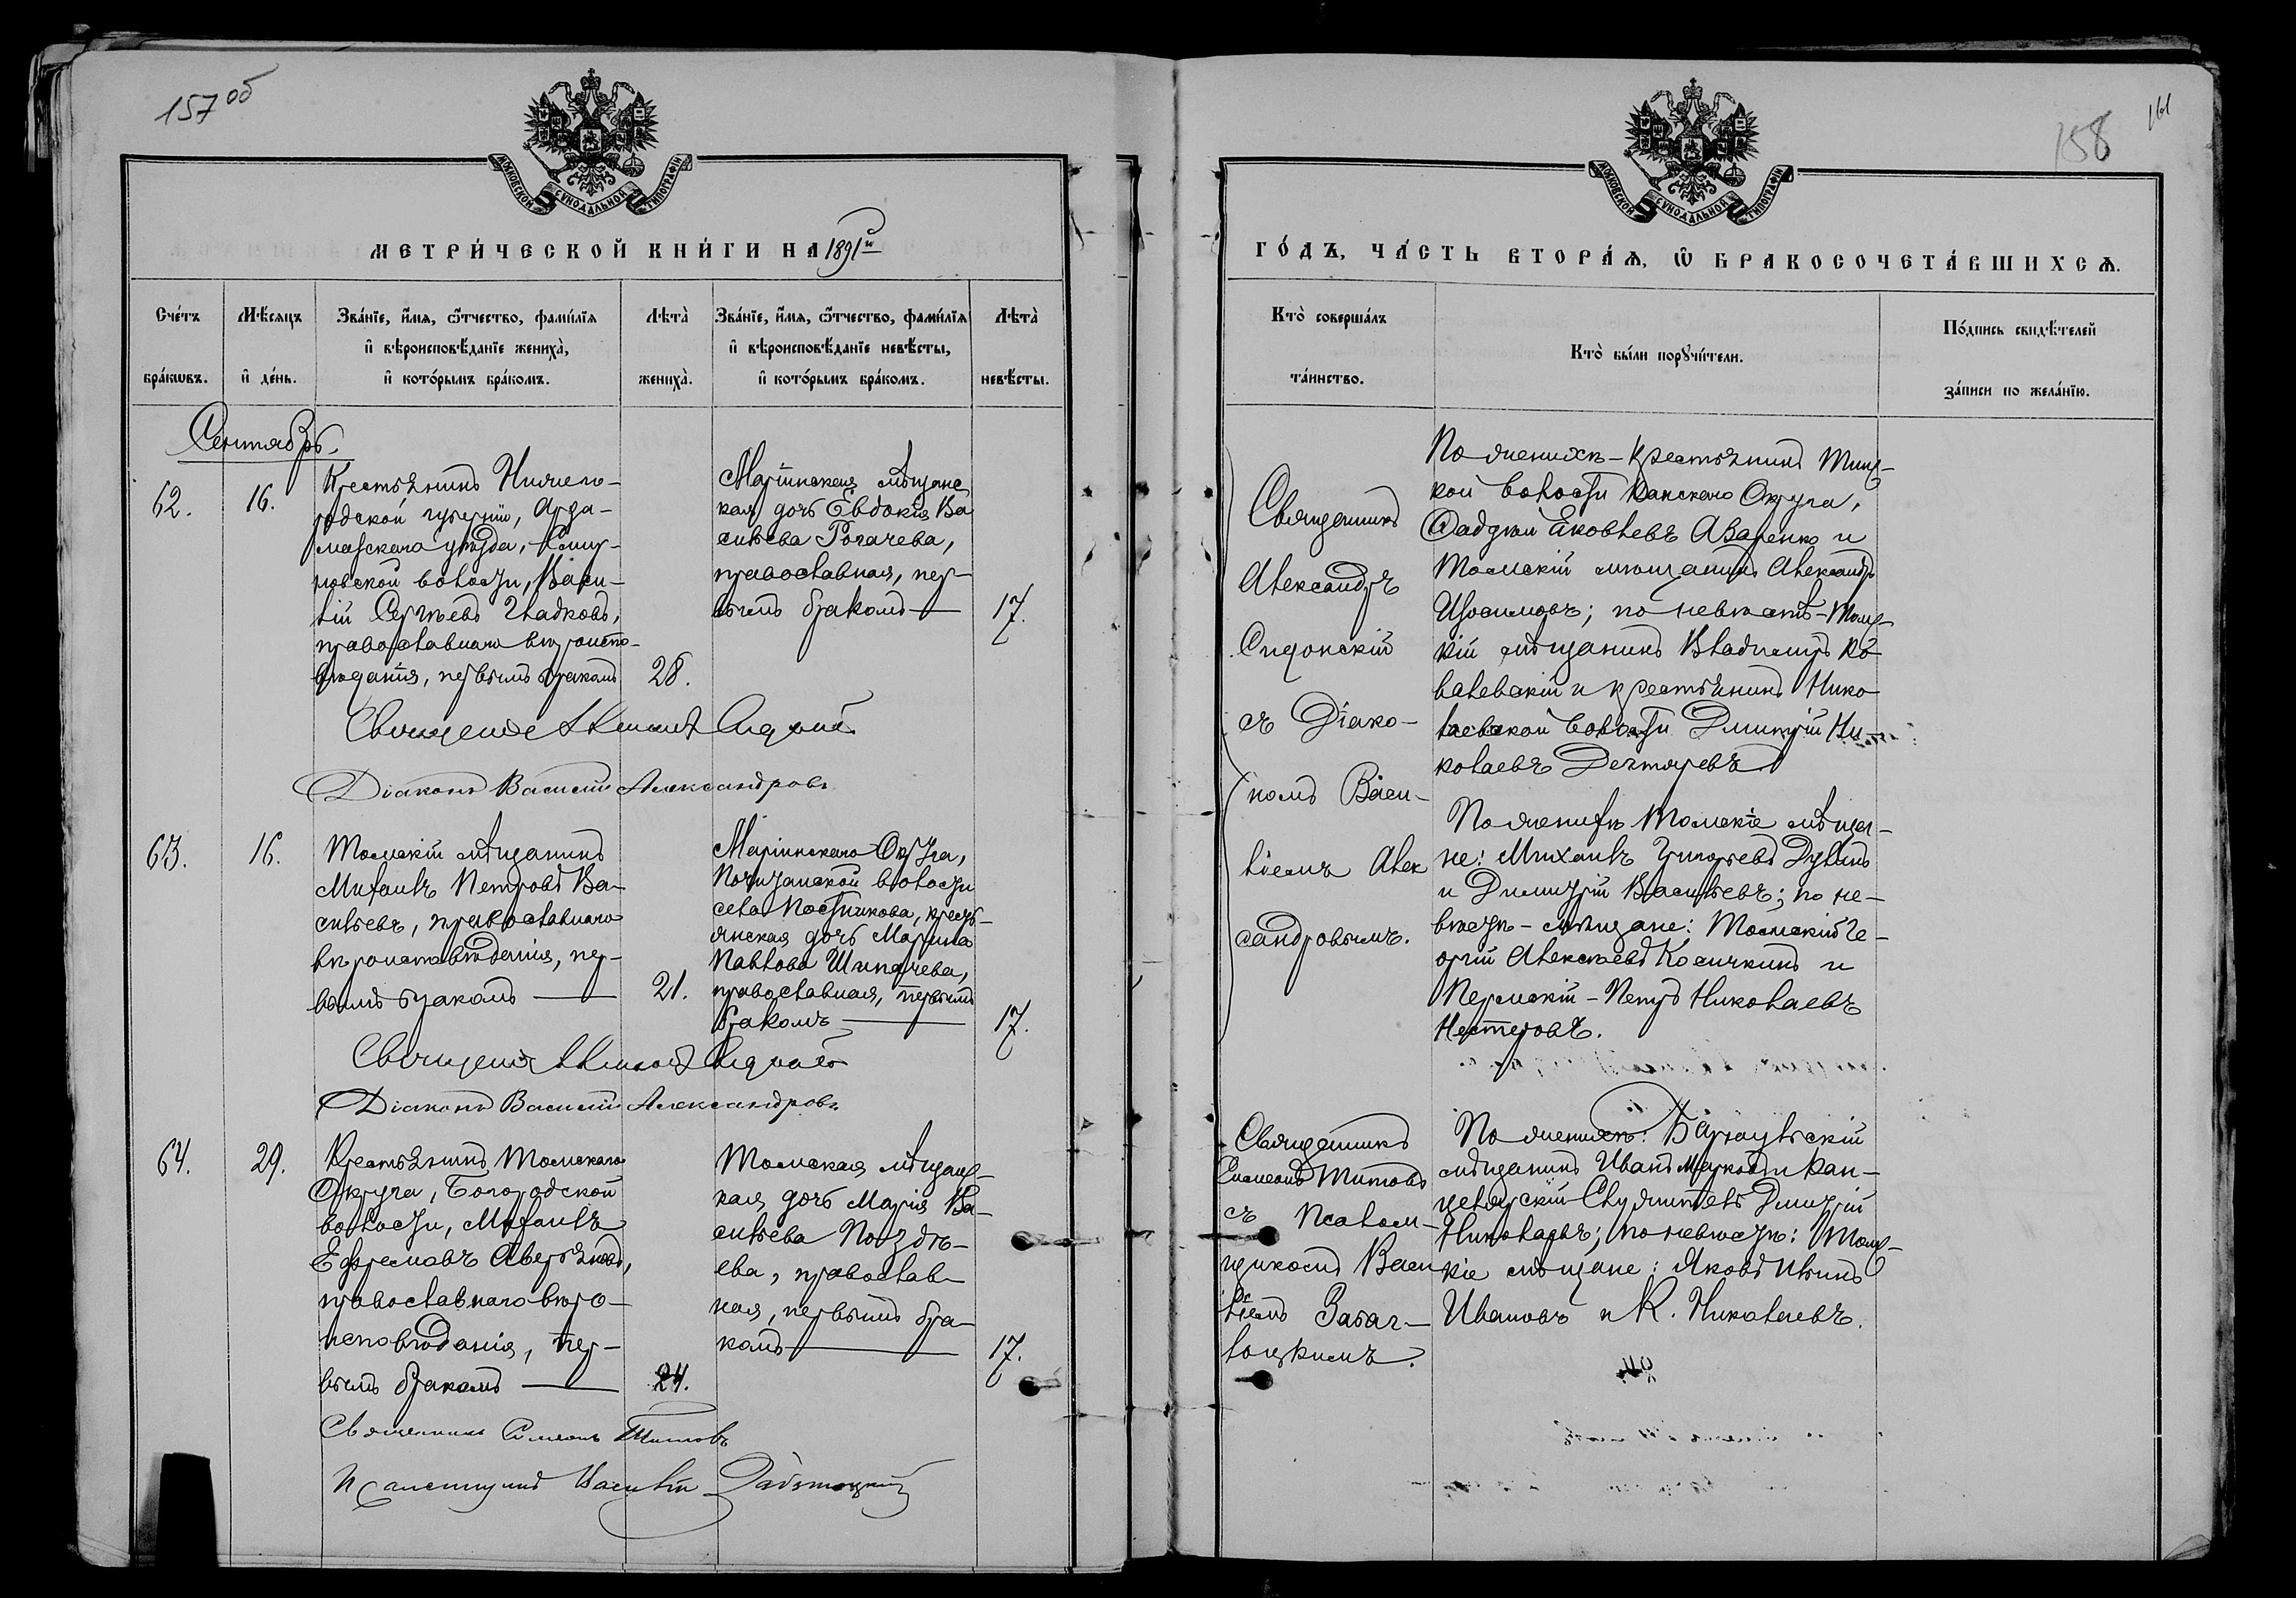 157 об
МОСКОВСКОЙ СѴНОДАЛЬНОЙ ТИПОГРАФІИ
МЕТРИ́ЧЕСКОЙ КНИ́ГИ НА 1891й
Сче́тъ бра́кѡвъ.
Мѣ́сяцъ и҆ де́нь.
Зва́нїе, и҆́мя, ѻ҆́тчество, фами́лїя
и҆ вѣроисповѣ́данїе жениха̀,
и҆ кото́рымъ бра́комъ.
Лѣта̀ жениха̀.
Зва́нїе, и҆́мя, ѻ҆́тчество, фами́лїя
и҆ вѣроисповѣ́данїе невѣ́сты,
и҆ кото́рымъ бра́комъ.
Лѣта̀ невѣ́сты.
Сентябрь.
62.
16.
Крестьянинъ Нижего-
родской губерніи, Арда-
товскаго уѣзда,
новской волости, Васи-
лій Сергѣевъ Гладковъ,
православнаго вѣроиспо-
вѣданія, первымъ бракомъ
28.
Маріинская мѣщанс
кая дочь Евдокія Ва
сильева Рогачева,
православная, пер-
вымъ бракомъ —
17.
Священникъ Сидонскій
Діаконъ Василій Александровъ
63.
16.
Томскій мѣщанинъ
Михаилъ Петровъ Ва-
сильевъ, православнаго
вѣроисповѣданія, пер-
вымъ бракомъ —
21.
Маріинскаго Округа,
Почитанской волости
села Постникова, кресть-
янская дочь Марина
Павлова Шипачева,
православная, первымъ
бракомъ —
17.
Священникъ Сидонскій
Діаконъ Василій Александровъ
64.
29.
Крестьянинъ Томскаго
Округа, Богородской
волости, Михаилъ
Ефремовъ Аверьяновъ,
православнаго вѣро-
исповѣданія, пер-
вымъ бракомъ —
24.
Томская мѣщанс-
кая дочь Марія Ва-
сильева Поздѣ-
ева, православ-
ная, первымъ бра-
комъ —
17.
Священникъ Симеонъ Титовъ
Псаломщикъ Василій Заблоцкій
158
161
МОСКОВСКОЙ СѴНОДАЛЬНОЙ ТИПОГРАФІИ
ГО́ДЪ, ЧА́СТЬ ВТОРА́Ѧ, Ѽ БРАКОСОЧЕТА́ВШИХСѦ.
Кто̀ соверша́лъ
та́инство.
Кто̀ бы́ли порꙋчи́тели.
По́дпись свидѣ́телей
за́писи по жела́нїю.
Священникъ
Александръ
Сидонскій
съ Діако-
номъ Васи-
ліемъ Алек
сандровымъ.
По женихѣ – Крестьянинъ
кой волости Канскаго Округа,
Фаддей Яковлевъ Азаренко и
Томскій мѣщанинъ Александръ
Изосимовъ; по невѣстѣ – Томс-
кій мѣщанинъ Владимиръ Ко
валевскій и крестьянинъ Нико
лаевской волости Дмитрій Ни-
колаевъ Дехтяревъ
По женихѣ Томскіе мѣща-
не: Михаилъ Григорьевъ
и Димитрій Васильевъ; по не-
вѣстѣ – мѣщане: Томскій Ге-
оргій Алексѣевъ Косичкинъ и
Пермскій – Петръ Николаевъ
Нестеровъ.
Священникъ
Симеонъ Титовъ
съ Псалом-
щикомъ Васи
ліемъ Забл-
лоцкимъ.
По женихѣ: Барнаульскій
мѣщанинъ Иванъ Марковъ и Кан-
целярскій Служитель Дмитрій
Николаевъ; по невѣстѣ: Томс-
кіе мѣщане: Яковъ Ильинъ
Ивановъ и К. Николаевъ.